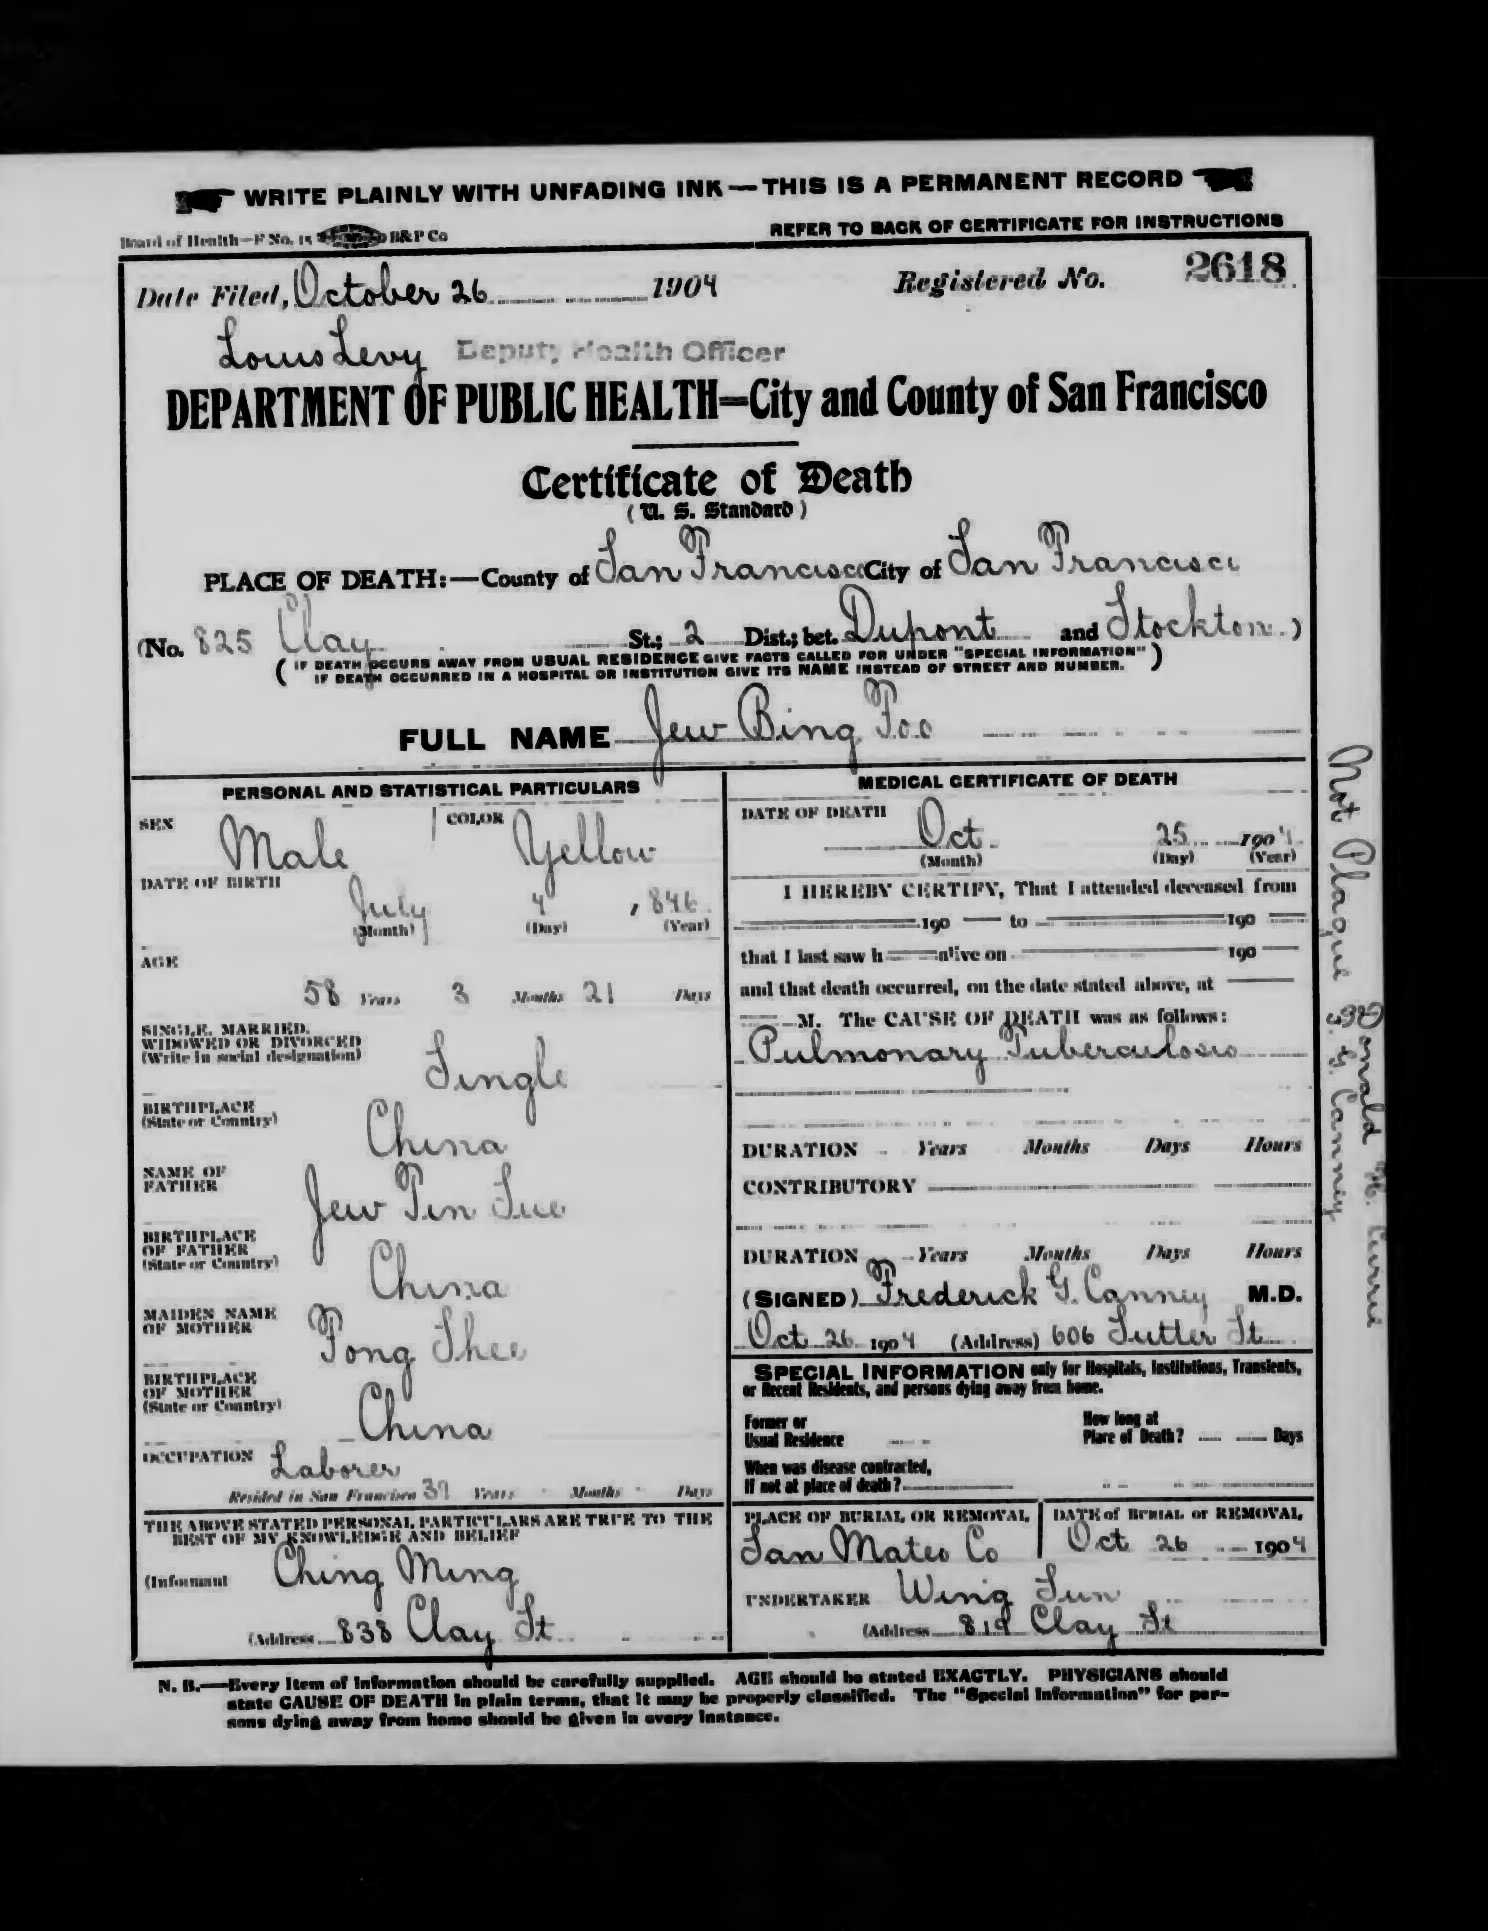 WRITE PLAINLY WITH UNFADING INK — THIS IS A PERMANENT RECORD
Board of Health—F No. 15 B&P Co
REFER TO BACK OF CERTIFICATE FOR INSTRUCTIONS
Date Filed, October 26 1904 Registered No. 2618
Louis Levy Deputy Health Officer
DEPARTMENT OF PUBLIC HEALTH—City and County of San Francisco
Certificate of Death
(U. S. Standard)
PLACE OF DEATH:—County of San Francisco City of San Francisco
(No. 825 Clay St.; 2 Dist.; bet. Dupont and Stockton)
( IF DEATH OCCURS AWAY FROM USUAL RESIDENCE GIVE FACTS CALLED FOR UNDER "SPECIAL INFORMATION" )
IF DEATH OCCURRED IN A HOSPITAL OR INSTITUTION GIVE ITS NAME INSTEAD OF STREET AND NUMBER.
FULL NAME Jew Bing Foo
PERSONAL AND STATISTICAL PARTICULARS
SEX Male COLOR Yellow
DATE OF BIRTH
July 4, 1846
(Month) (Day) (Year)
AGE
58 Years 3 Months 21 Days
SINGLE, MARRIED,
WIDOWED OR DIVORCED
(Write in social designation) Single
BIRTHPLACE
(State or Country) China
NAME OF
FATHER Jew Tin Sue
BIRTHPLACE
OF FATHER
(State or Country) China
MAIDEN NAME
OF MOTHER Fong Shee
BIRTHPLACE
OF MOTHER
(State or Country) China
OCCUPATION Laborer
Resided in San Francisco 37 Years Months Days
THE ABOVE STATED PERSONAL PARTICULARS ARE TRUE TO THE
BEST OF MY KNOWLEDGE AND BELIEF
(Informant Ching Ming
(Address 838 Clay St
MEDICAL CERTIFICATE OF DEATH
DATE OF DEATH
Oct. 25 1904
(Month) (Day) (Year)
I HEREBY CERTIFY, That I attended deceased from
190 to 190
that I last saw h alive on 190
and that death occurred, on the date stated above, at
M. The CAUSE OF DEATH was as follows:
Pulmonary Tuberculosis
DURATION Years Months Days Hours
CONTRIBUTORY
DURATION Years Months Days Hours
(SIGNED) Frederick G. Canney M.D.
Oct 26 1904 (Address) 606 Sutter St
SPECIAL INFORMATION only for Hospitals, Institutions, Transients,
or Recent Residents, and persons dying away from home.
Former or
Usual Residence
How long at
Place of Death? Days
When was disease contracted,
If not at place of death?
PLACE OF BURIAL OR REMOVAL
San Mateo Co
DATE of BURIAL or REMOVAL
Oct 26 1904
UNDERTAKER Wing Sun
(Address 819 Clay St
N. B.—Every item of information should be carefully supplied. AGE should be stated EXACTLY. PHYSICIANS should
state CAUSE OF DEATH in plain terms, that it may be properly classified. The "Special Information" for per-
sons dying away from home should be given in every instance.
Not Plague
Donald H. Currie
F. G. Canney